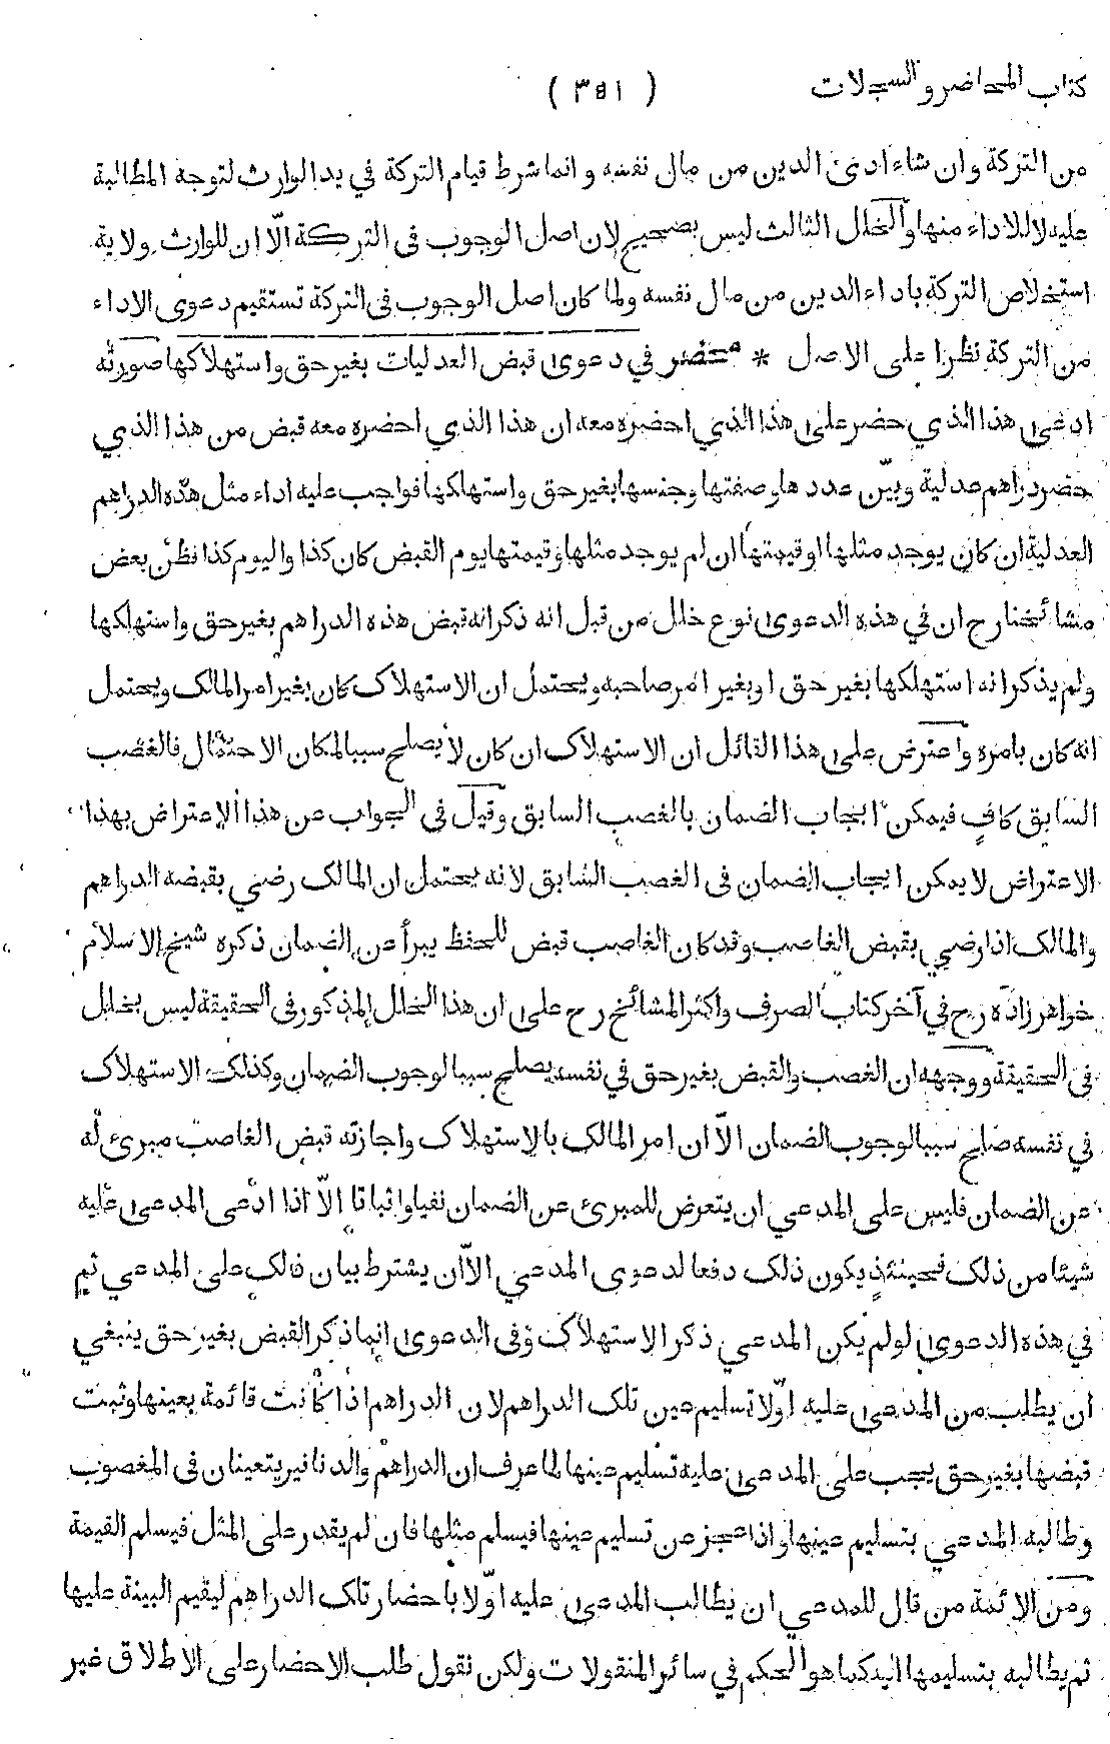 كتاب المحاضر والسجلات ( ٣٥١ )
من التركة وان شاء ادى الدين من مال نفسه وانما شرط قيام التركة في يد الوارث لتوجه المطالبة
عليه لا للاداء منها والخلل الثالث ليس بصحيح لان اصل الوجوب فى التركة الّا ان للوارث ولاية
استخلاص التركة باداء الدين من مال نفسه ولما كان اصل الوجوب فى التركة تستقيم دعوى الاداء
من التركة نظرا على الاصل * محضر في دعوى قبض العدليات بغير حق واستهلاكها صورته
ادعى هذا الذي حضر على هذا الذي احضره معه ان هذا الذي احضره معه قبض من هذا الذي
حضر دراهم عدلية وبيّن عددها وصفتها وجنسها بغير حق واستهلكها فواجب عليه اداء مثل هذه الدراهم
العدلية ان كان يوجد مثلها او قيمتها ان لم يوجد مثلها وقيمتها يوم القبض كان كذا واليوم كذا فظن بعض
مشائخنا رح ان في هذه الدعوى نوع خلل من قبل انه ذكر انه قبض هذه الدراهم بغير حق واستهلكها
ولم يذكر انه استهلكها بغير حق او بغير امر صاحبه ويحتمل ان الاستهلاك كان بغير امر المالك ويحتمل
انه كان بامره واعترض على هذا القائل ان الاستهلاك ان كان لا يصلح سببا لمكان الاحتمال فالغصب
السابق كافٍ فيمكن ايجاب الضمان بالغصب السابق وقيل فى الجواب عن هذا الاعتراض بهذا
الاعتراض لا يمكن ايجاب الضمان فى الغصب السابق لانه يحتمل ان المالك رضي بقبضه الدراهم
والمالك اذا رضي بقبض الغاصب وقد كان الغاصب قبض للحفظ يبرأ عن الضمان ذكره شيخ الاسلام
خواهر زاده رح في آخر كتاب الصرف واكثر المشائخ رح على ان هذا الخلل المذكور فى الحقيقة ليس بخلل
فى الحقيقة ووجهه ان الغصب والقبض بغير حق في نفسه يصلح سببا لوجوب الضمان وكذلك الاستهلاك
في نفسه صالح سببا لوجوب الضمان الّا ان امر المالك بالاستهلاك واجازته قبض الغاصب مبرئ له
عن الضمان فليس على المدعي ان يتعرض للمبرئ عن الضمان نفيا واثباتا الّا اذا ادّعى المدعى عليه
شيئا من ذلك فحينئذٍ يكون ذلك دفعا لدعوى المدعي الاّ ان يشترط بيان ذلك على المدعي ثم
في هذه الدعوى لو لم يكن المدعي ذكر الاستهلاك وفى الدعوى انما ذكر القبض بغير حق ينبغي
ان يطلب من المدعى عليه اوّلا تسليم عين تلك الدراهم لان الدراهم اذا كانت قائمة بعينها وثبت
قبضها بغير حق يجب على المدعى عليه تسليم عينها لما عرف ان الدراهم والدنانير يتعينان فى المغصوب
وطالبه المدعي بتسليم عينها واذا عجز عن تسليم عينها فيسلم مثلها فان لم يقدر على المثل فيسلم القيمة
ومن الائمة من قال للمدعي ان يطالب المدعى عليه اوّلا باحضار تلك الدراهم ليقيم البينة عليها
ثم يطالبه بتسليمها اليه كما هو الحكم في سائر المنقولات ولكن نقول طلب الاحضار على الاطلاق غير